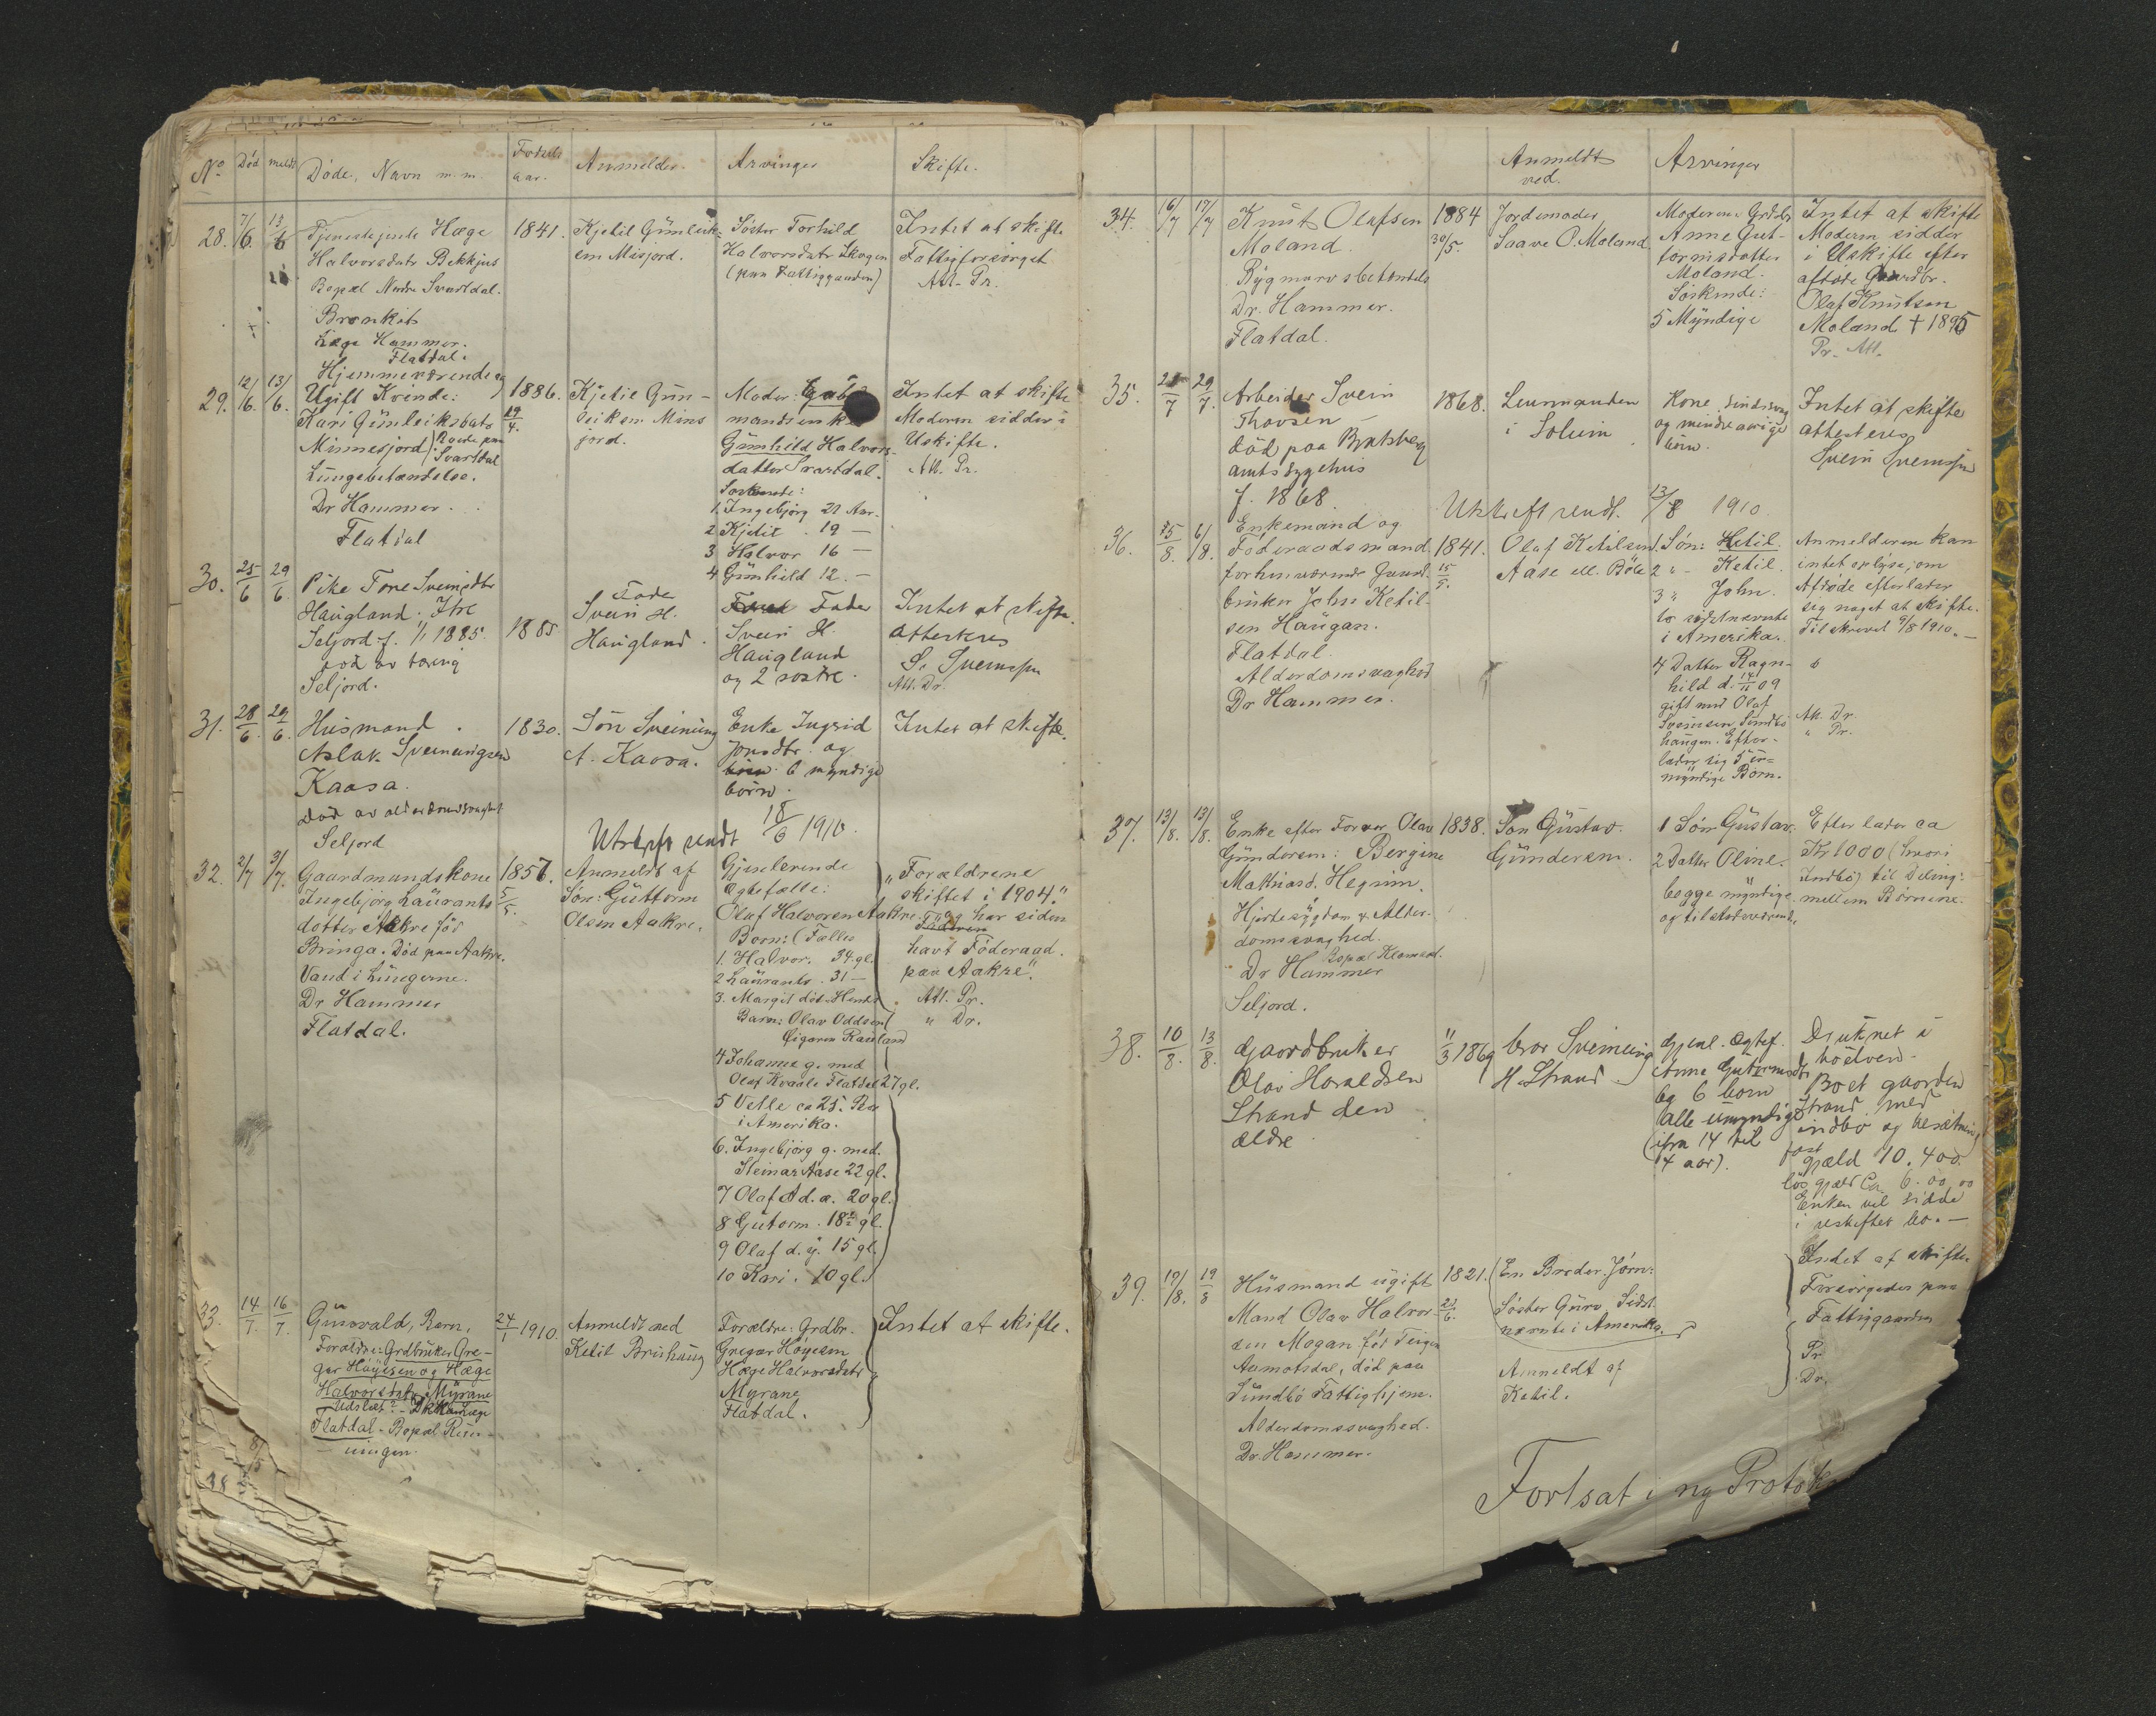 No Död meldt Döde, Navn m.m. Födsels aar. Anmelder. Arvinger Skifte.
28. 7/6. 15/6 Tjenestejente Hæge
Halvorsdatr Bekkjus
Bopæl Nordre Svartdal.
Bronkit
Læge Hammer.
Flatdal.
1841.
Kjetil Gunleik-
sen Misjord.
Söster Torhild
Halvorsdatr Skogen
(paa Fattiggaarden)
Intet at skifte
Fattigforsörget
Att. Pr.
29. 12/6. 13/6.
Hjemmeværende
Ugift Kvinde:
Kari Gunleiksdatr
Minnesjord
Svartdal
Lungebetændelse.
Dr Hammer.
Flatdal
1886.
29/4.
Kjetil Gun-
leiksen Mins
jord.
Moder:
Gunhild Halvors-
datter Svartdal.
Söskende:
1. Ingebjörg 21 Aar.
2 Kjetil . 19 —
3 Halvor 16 —
4 Gunhild 12. —
Intet at skifte
Moderen sidder i
Uskifte.
Att. Pr.
30. 25/6 29/6.
Pike Tone Sveinsdtr
Haugland. Itre
Seljord f. 1/1 1885.
död av tæring
Seljord.
1885
Fade
Svein H.
Haugland.
Fader
Svein H.
Haugland
og 2 søstre.
Intet at skifte.
Attesteres
S. Sveinssen
Att. Dr.
31. 28/6. 29/6.
Husmand
Aslak Sveinungsen
Kaasa.
Död av alderdomssvaghet
Seljord
1830.
Sön Sveinung
A. Kaasa.
Enke Ingrid
Jonsdtr. og
6 myndige
börn.
Intet at skifte.
Utskrift sendt 18/6 1910.
32. 2/7 3/7.
Gaardmandskone
Ingebjörg Laurants
dotter Aakre föd
Bringa. Död paa Aakre.
Vand i Lungerne.
Dr Hammer
Flatdal.
1857.
5/5.
Anmeldt af
Sön: Guttorm
Olsen Aakre.
Gjenlevende
Ægtefælle:
Olaf Halvorsen Aakre.
Born: (Fælles
1. Halvor. 34. gl.
2 Laurants. 31 —
3. Margit död. Hendes
Barn: Olav Oddsen
Öigaren Rauland
4 Johanne g. med
Olaf Kvaale Flatdal 27 gl.
5 Vetle ca 25.
i Amerika.
6. Ingebjörg g. med.
Steinar Aase 22 gl.
7 Olaf d. æ. 20 gl.
8 Gutorm. 18½ gl.
9 Olaf d. y. 15 gl.
10 Kari. 10 gl.
„Forældrene
skiftet i 1904."
„og har siden
havt Föderaad.
paa Aakre".
Att. Pr.
" Dr.
33. 14/7. 16/7.
Gunvald, Barn,
Forældre: Grdbruker Gre-
gar Höyesen og Hæge
Halvorsdatr Myrane
Flatdal - Bopæl
24/1 1910.
Anmeldt ved
Ketil Bruhaug
Forældre: Grdbr.
Gregar Höyesen
Hæge Halvorsdatr
Myrane
Flatdal.
Intet at skifte.
38
Anmeldt ved. Arvinger
34. 16/7 17/7
Knut Olafsen
Moland
Rygmarvsbetændelse
Dr. Hammer.
Flatdal.
1884
30/5.
Jordemoder
Saave O. Moland.
Moderen: Grdbr.
Anne Gut-
tormsdatter
Moland.
Söskende:
5 Myndige
Intet at skifte
Moderen sidder
i Uskifte efter
afdöde Gaardbr.
Olaf Knutsen
Moland † 1895
Pr. Att.
35. 29/7.
Arbeider Svein
Thovsen
död paa Bratsberg
amts sygehus
f. 1868.
1868.
Lensmanden
i Solum
Kone sindssyg
og mindreaarige
börn.
Intet at skifte
attesteres
Svein Sveinssen
Utskrift sendt. 13/8 1910
36. 8. 6/8.
Enkemand og
Föderaadsmand
forhenværende Gaard-
bruker John Ketil-
sen Haugan.
Flatdal.
Alderdomssvaghed
Dr Hammer.
1841.
15/5.
Olaf Ketilsen
Aase ell. Böle
1. Sön: Ketil.
2 " - Ketil.
3 " John.
to sidstnævnte
i Amerika.
4 Datter Ragn-
hild d. 09
gift med Olaf
Sveinsen Sundbö
haugen. Efter-
lader sig
myndige Börn.
Anmelderen kan
intet oplyse, om
Afdöde efterlader
sig noget at skifte.
Tilskrevet 9/8 1910. —
Att. Dr.
" Pr.
37. 13/8. 13/8.
Enke efter Olav
Gundersen: Bergine
Mathiasd. Hegnim.
Hjertesygdom & Alder-
domssvaghed.
Dr Hammer
Seljord.
1838.
Sön Gustav
Gundersen.
1 Sön Gustav.
2 Datter Oline.
begge myndige
og tilstedeværende
Efterlader ca
Kr 1000 (hvori
Indbo) til Deling
mellem Börnene.
38. 10/8. 13/8.
Gaardbruker
Olav Haraldsen
Strand den
ældre
11/3 1869
bror Sveinung
H. Strand
gjenl. Ægtef.
Anne Gutormsdtr
og 6 born
alle umyndige
(ifra 14 til
4 aar).
Druknet i
Boet gaarden
Strand med
indbo og besætning
fast gjæld 10.400
lös gjæld Ca 6.00,00
Enken vil sidde
i uskiftet bo. —
39. 17/8. 19/8
Husmand ugift
Mand Olav Halvor-
sen Mogan föd Teigen
Aamotsdal, död paa
Sundbö Fattighjem.
Alderdomssvaghed.
Dr. Hammer.
1821.
23/6.
En Broder Jörn:
Söster Guro, Sidst
nævnte i Amerika.
Anmeldt af
Ketil.
Intet at skifte.
Forsörgedes paa
Fattiggaarden
Pr.
Dr.
Fortsat i ny Protok